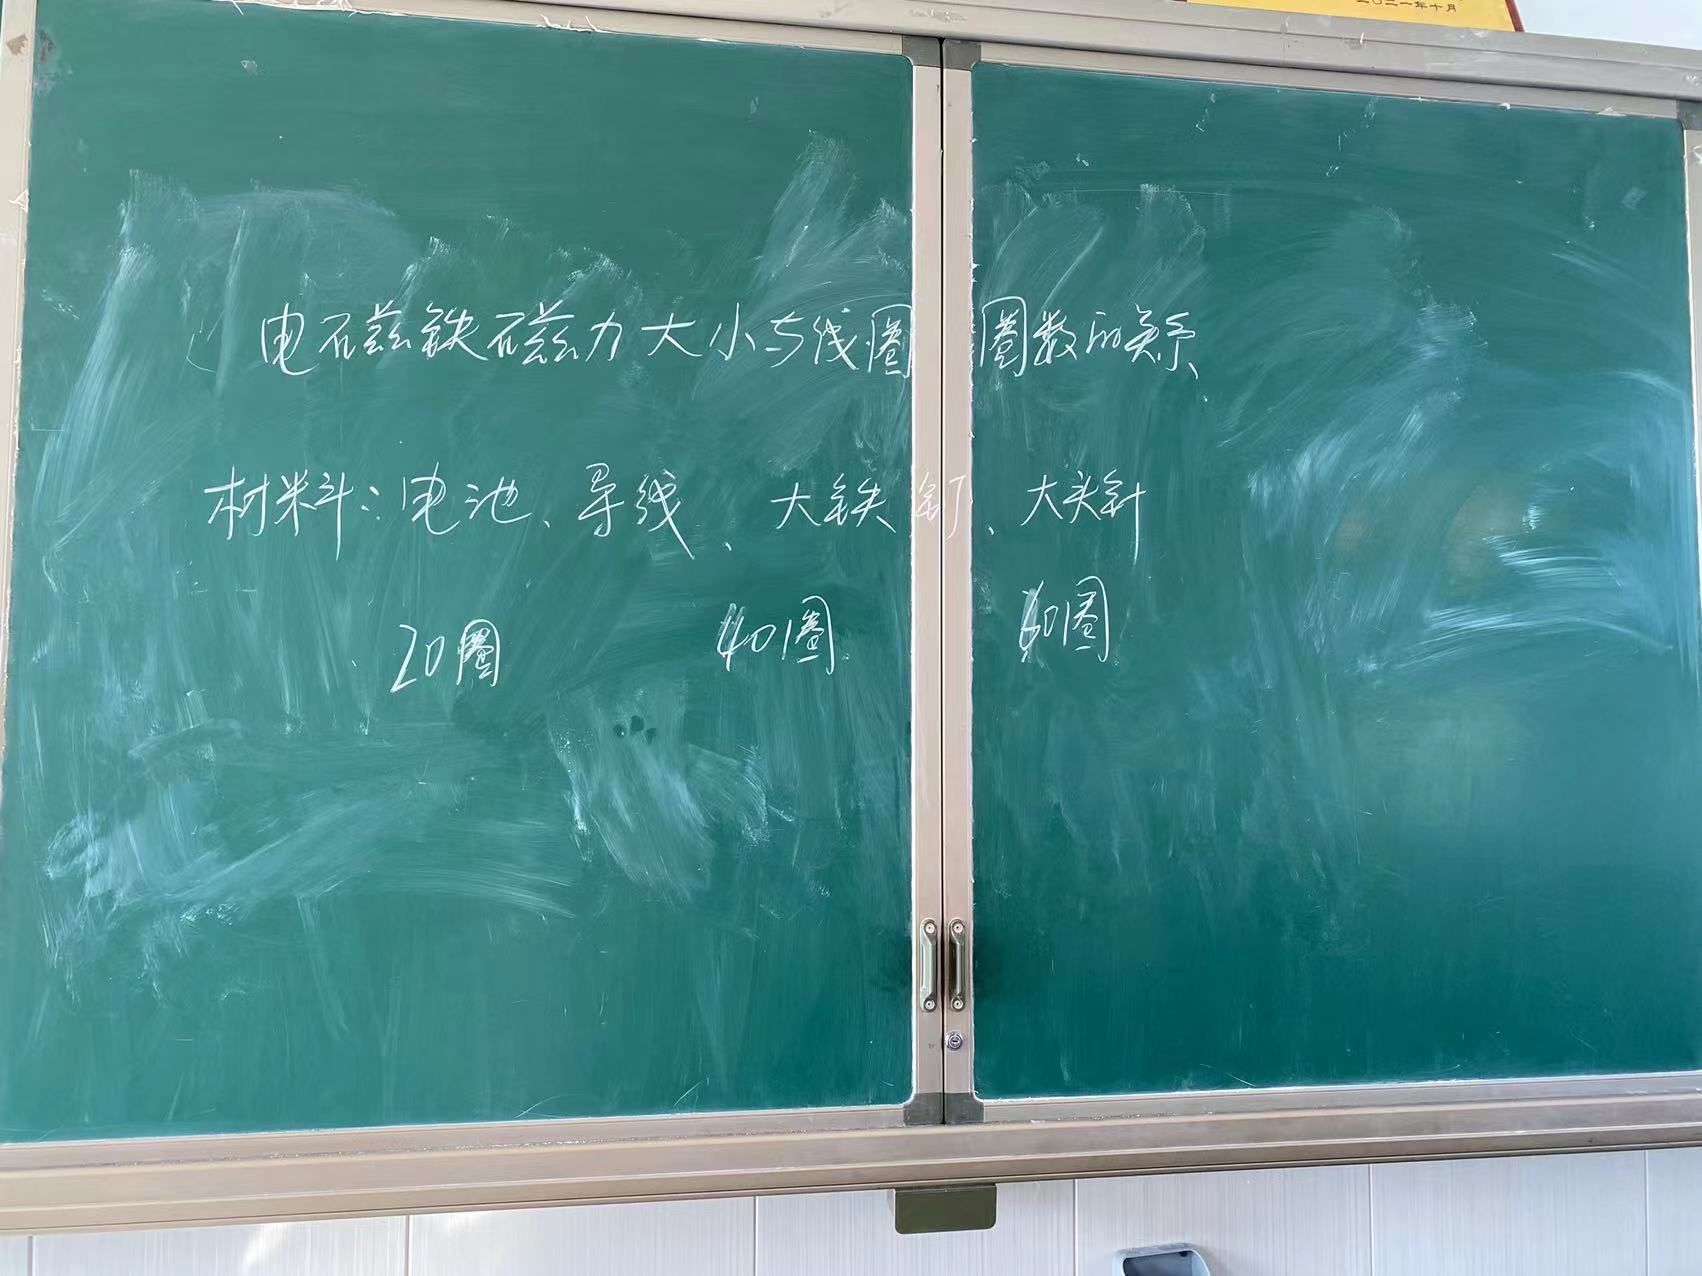 二〇二一年十月
电磁铁磁力大小与线圈圈数的关系
材料:电池、导线、大铁钉、大头针
20圈 40圈 60圈